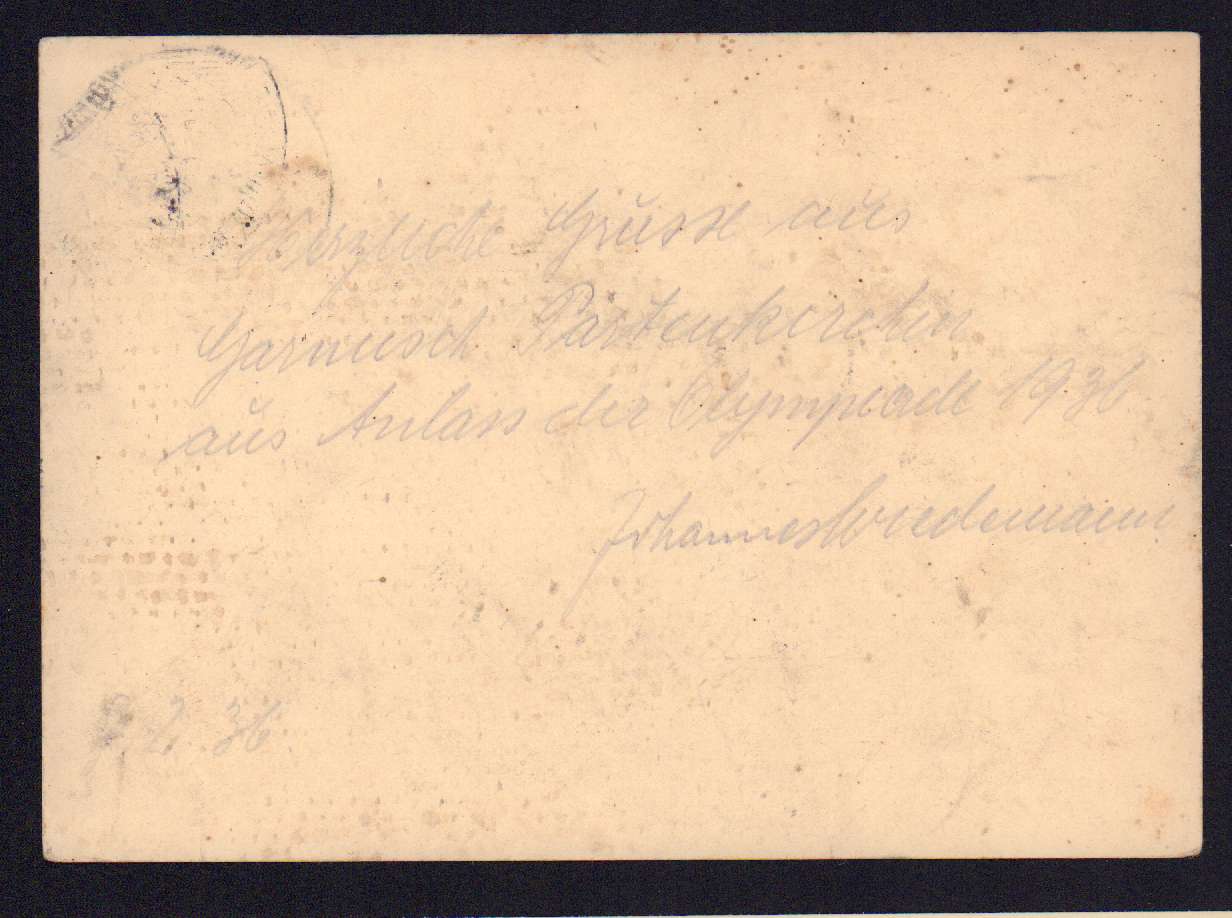 Herzliche Grüsse aus
Garmisch Partenkirchen
aus Anlass der Olympiade 1936
Johannes Wiedemann
2. 36.